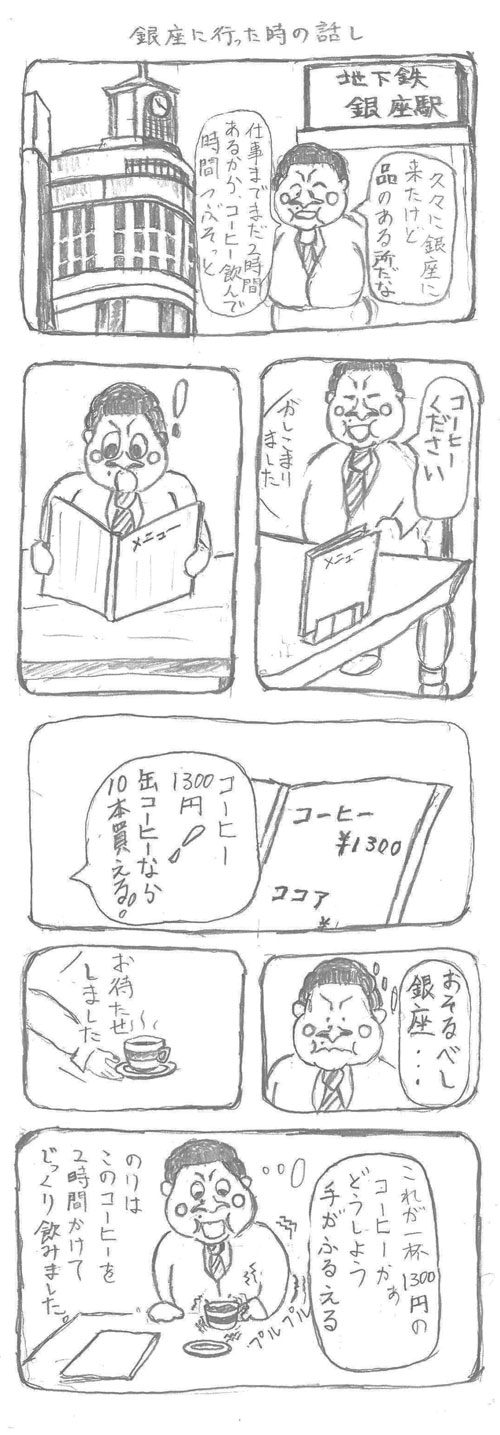 銀座に行った時の話し
地下鉄
銀座駅
久々に銀座に
来たけど
品のある所だな
仕事までまだ2時間
あるから、コーヒー飲んで
時間つぶそっと
コーヒー
ください
かしこまり
ました
メニュー
!
メニュー
コーヒー
¥1300
ココア
¥
コーヒー
1300
円!!
缶コーヒーなら
10本買える。
おそるべし
銀座・・・
お待たせ
しました
これが一杯1300円の
コーヒーかぁ
どうしよう
手がふるえる
プルプル
のりは
このコーヒーを
2時間かけて
じっくり飲みました。